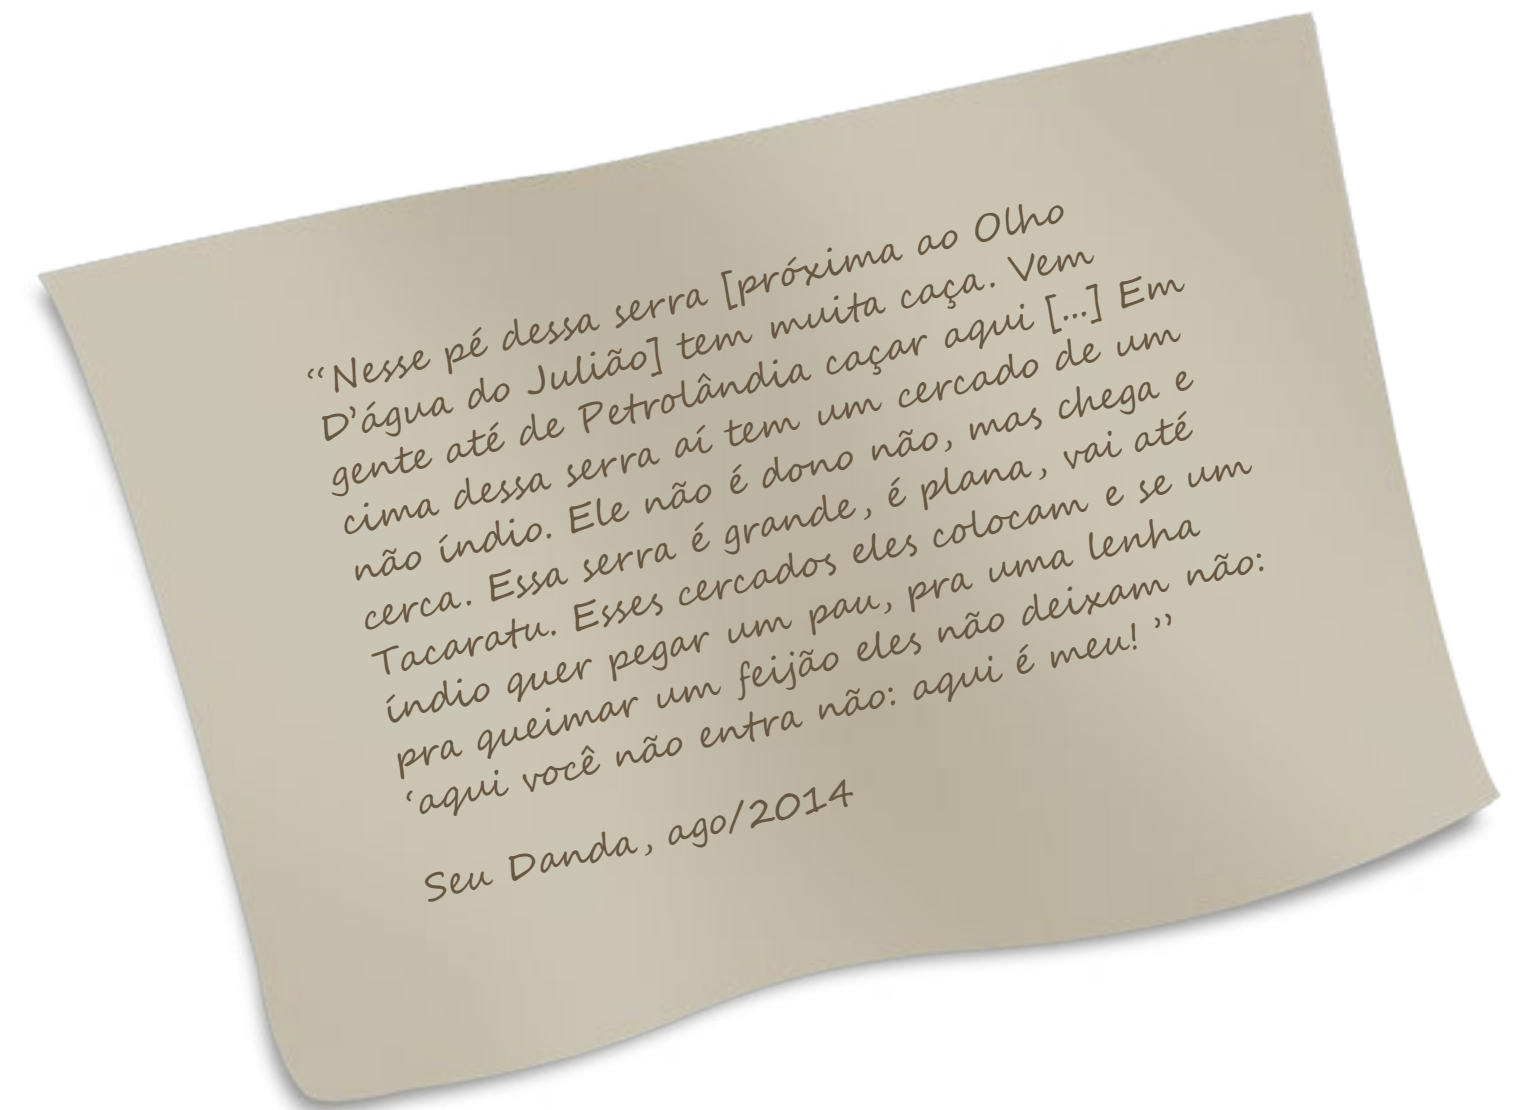 “Nesse pé dessa serra [próxima ao Olho
D’água do Julião] tem muita caça. Vem
gente até de Petrolândia caçar aqui [...] Em
cima dessa serra aí tem um cercado de um
não índio. Ele não é dono não, mas chega e
cerca. Essa serra é grande, é plana, vai até
Tacaratu. Esses cercados eles colocam e se um
índio quer pegar um pau, pra uma lenha
pra queimar um feijão eles não deixam não:
‘aqui você não entra não: aqui é meu! ”
Seu Danda, ago/2014